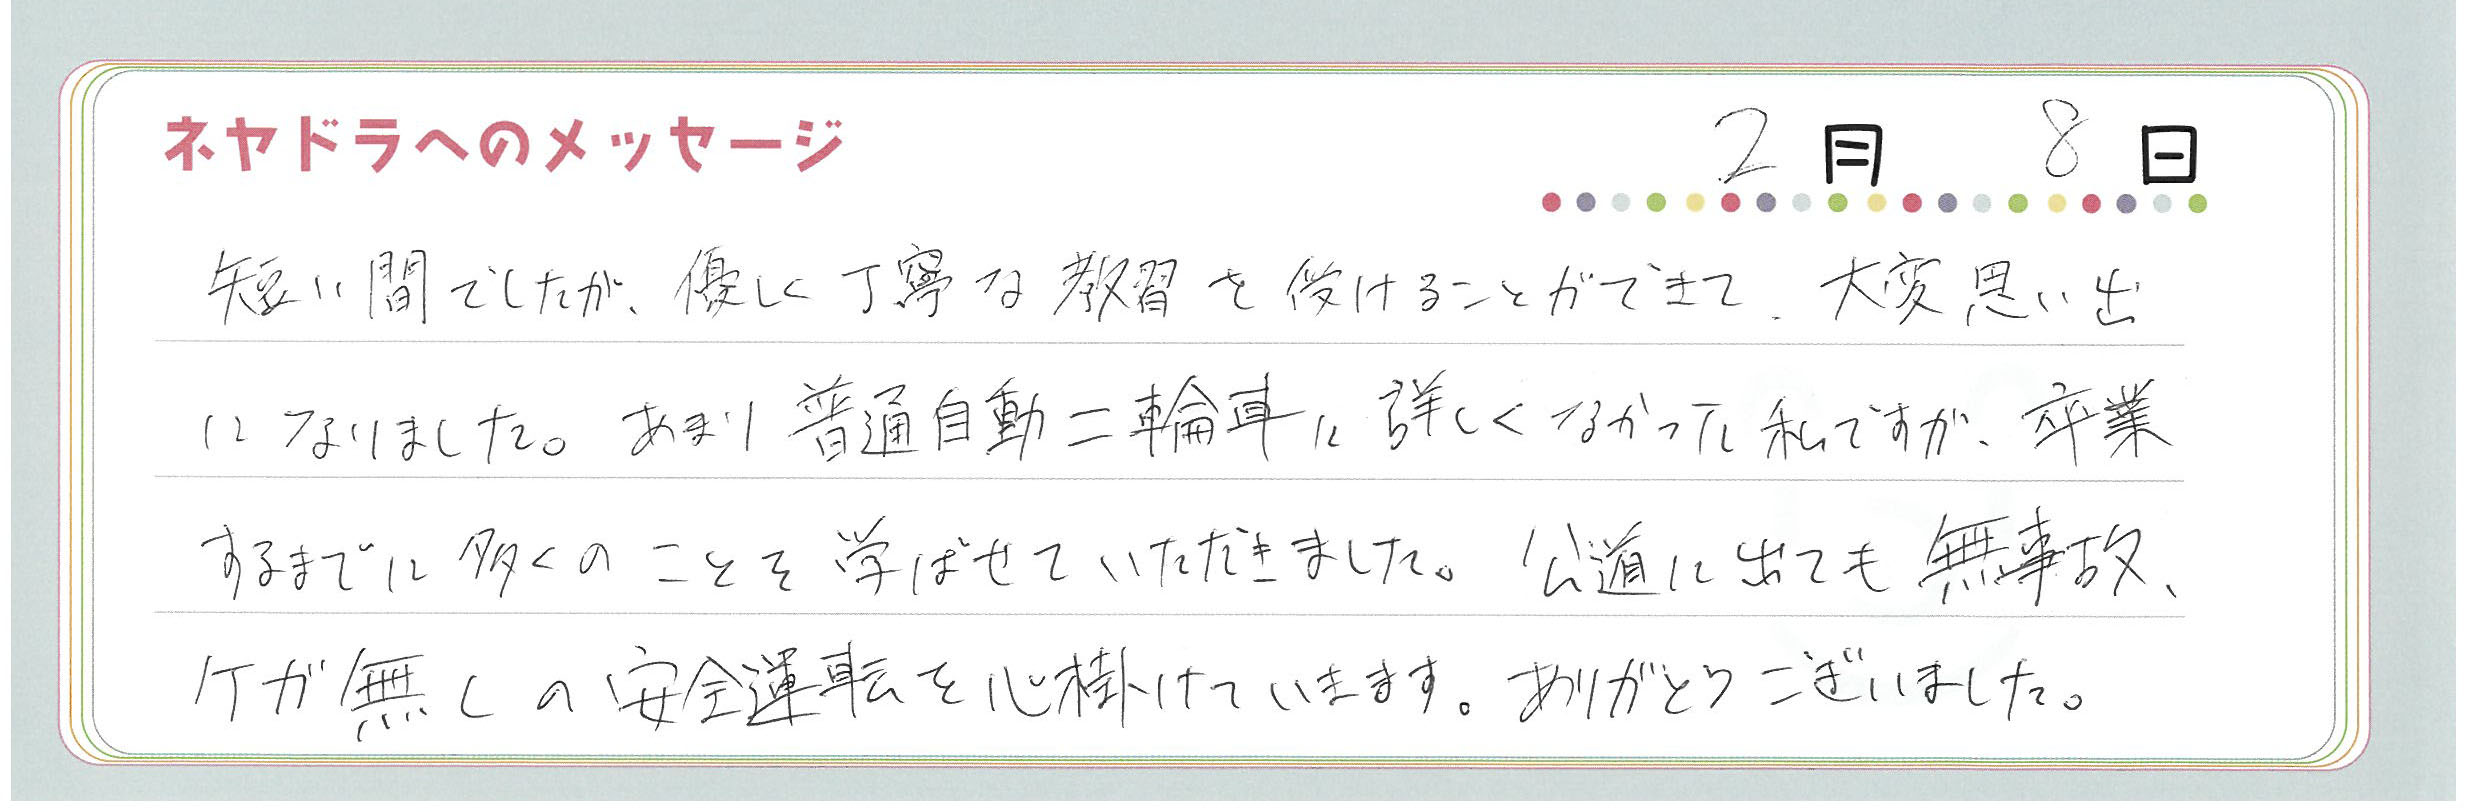 ネヤドラへのメッセージ 2月 8日
短い間でしたが、優しく丁寧な教習を受けることができて、大変思い出
になりました。あまり普通自動二輪車に詳しくなかった私ですが、卒業
するまでに多くのことを学ばせていただきました。公道に出ても無事故、
ケガ無しの安全運転を心掛けていきます。ありがとうございました。